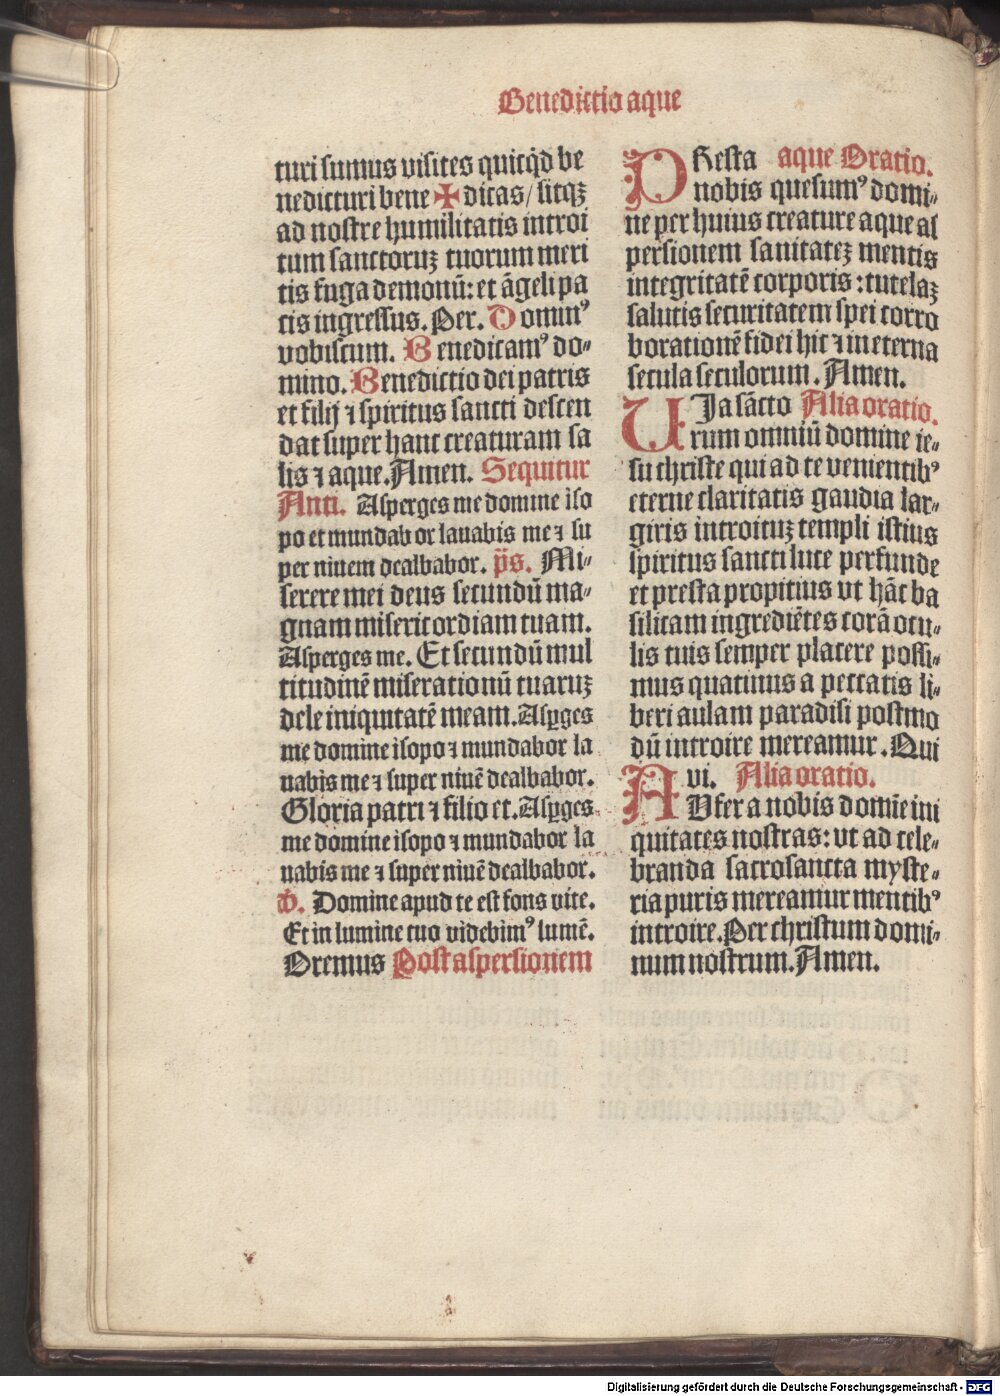 Benedictio aque
turi sumus visites quicq̇d be
nedicturi bene ✠ dicas / sitqꝫ
ad nostre humilitatis introi
tum sanctoruꝫ tuorum meri
tis fuga demonū: et āgeli pa
cis ingressus. Per. Domin⁹
vobiscum. Benedicam⁹ do⸗
mino. Benedictio dei patris
et filij ⁊ spiritus sancti descen
dat super hanc creaturam sa
lis ⁊ aque. Amen. Sequitur
Anti. Asperges me domine iso
po et mundabor lavabis me ⁊ su
per nivem dealbabor. p̄s. Mi⸗
serere mei deus secundū ma⸗
gnam misericordiam tuam.
Asperges me. Et secundū mul
titudinē miserationū tuaruꝫ
dele iniquitatē meam. Asꝑges
me domine isopo ⁊ mundabor la
uabis me ⁊ super niuē dealbabor.
Gloria patri ⁊ filio et. Asꝑges
me domine isopo ⁊ mundabor la
uabis me ⁊ super niuē dealbabor.
℣. Domine apud te est fons vite.
Et in lumine tuo videbim⁹ lumē.
Oremus Post aspersionem
PResta aque Oratio.
nobis quesum⁹ domi⸗
ne per huius creature aque as
persionem sanitateꝫ mentis
integritatē corporis: tutelaꝫ
salutis securitatem spei corro
borationē fidei hic ⁊ in eterna
secula seculorum. Amen.
UIa sācto Alia oratio.
rum omniū domine ie⸗
su christe qui ad te venientib⁹
eterne claritatis gaudia lar⸗
giris introituꝫ templi istius
spiritus sancti luce perfunde
et presta propitius vt hāc ba
silicam ingrediētes corā ocu⸗
lis tuis semper placere possi⸗
mus quatinus a peccatis li⸗
beri aulam paradisi postmo
dū introire mereamur. Qui
vi. Alia oratio.
AUfer a nobis domīe ini
quitates nostras: vt ad cele⸗
branda sacrosancta myste⸗
ria puris mereamur mentib⁹
introire. Per christum domi⸗
num nostrum. Amen.
Digitalisierung gefördert durch die Deutsche Forschungsgemeinschaft - DFG